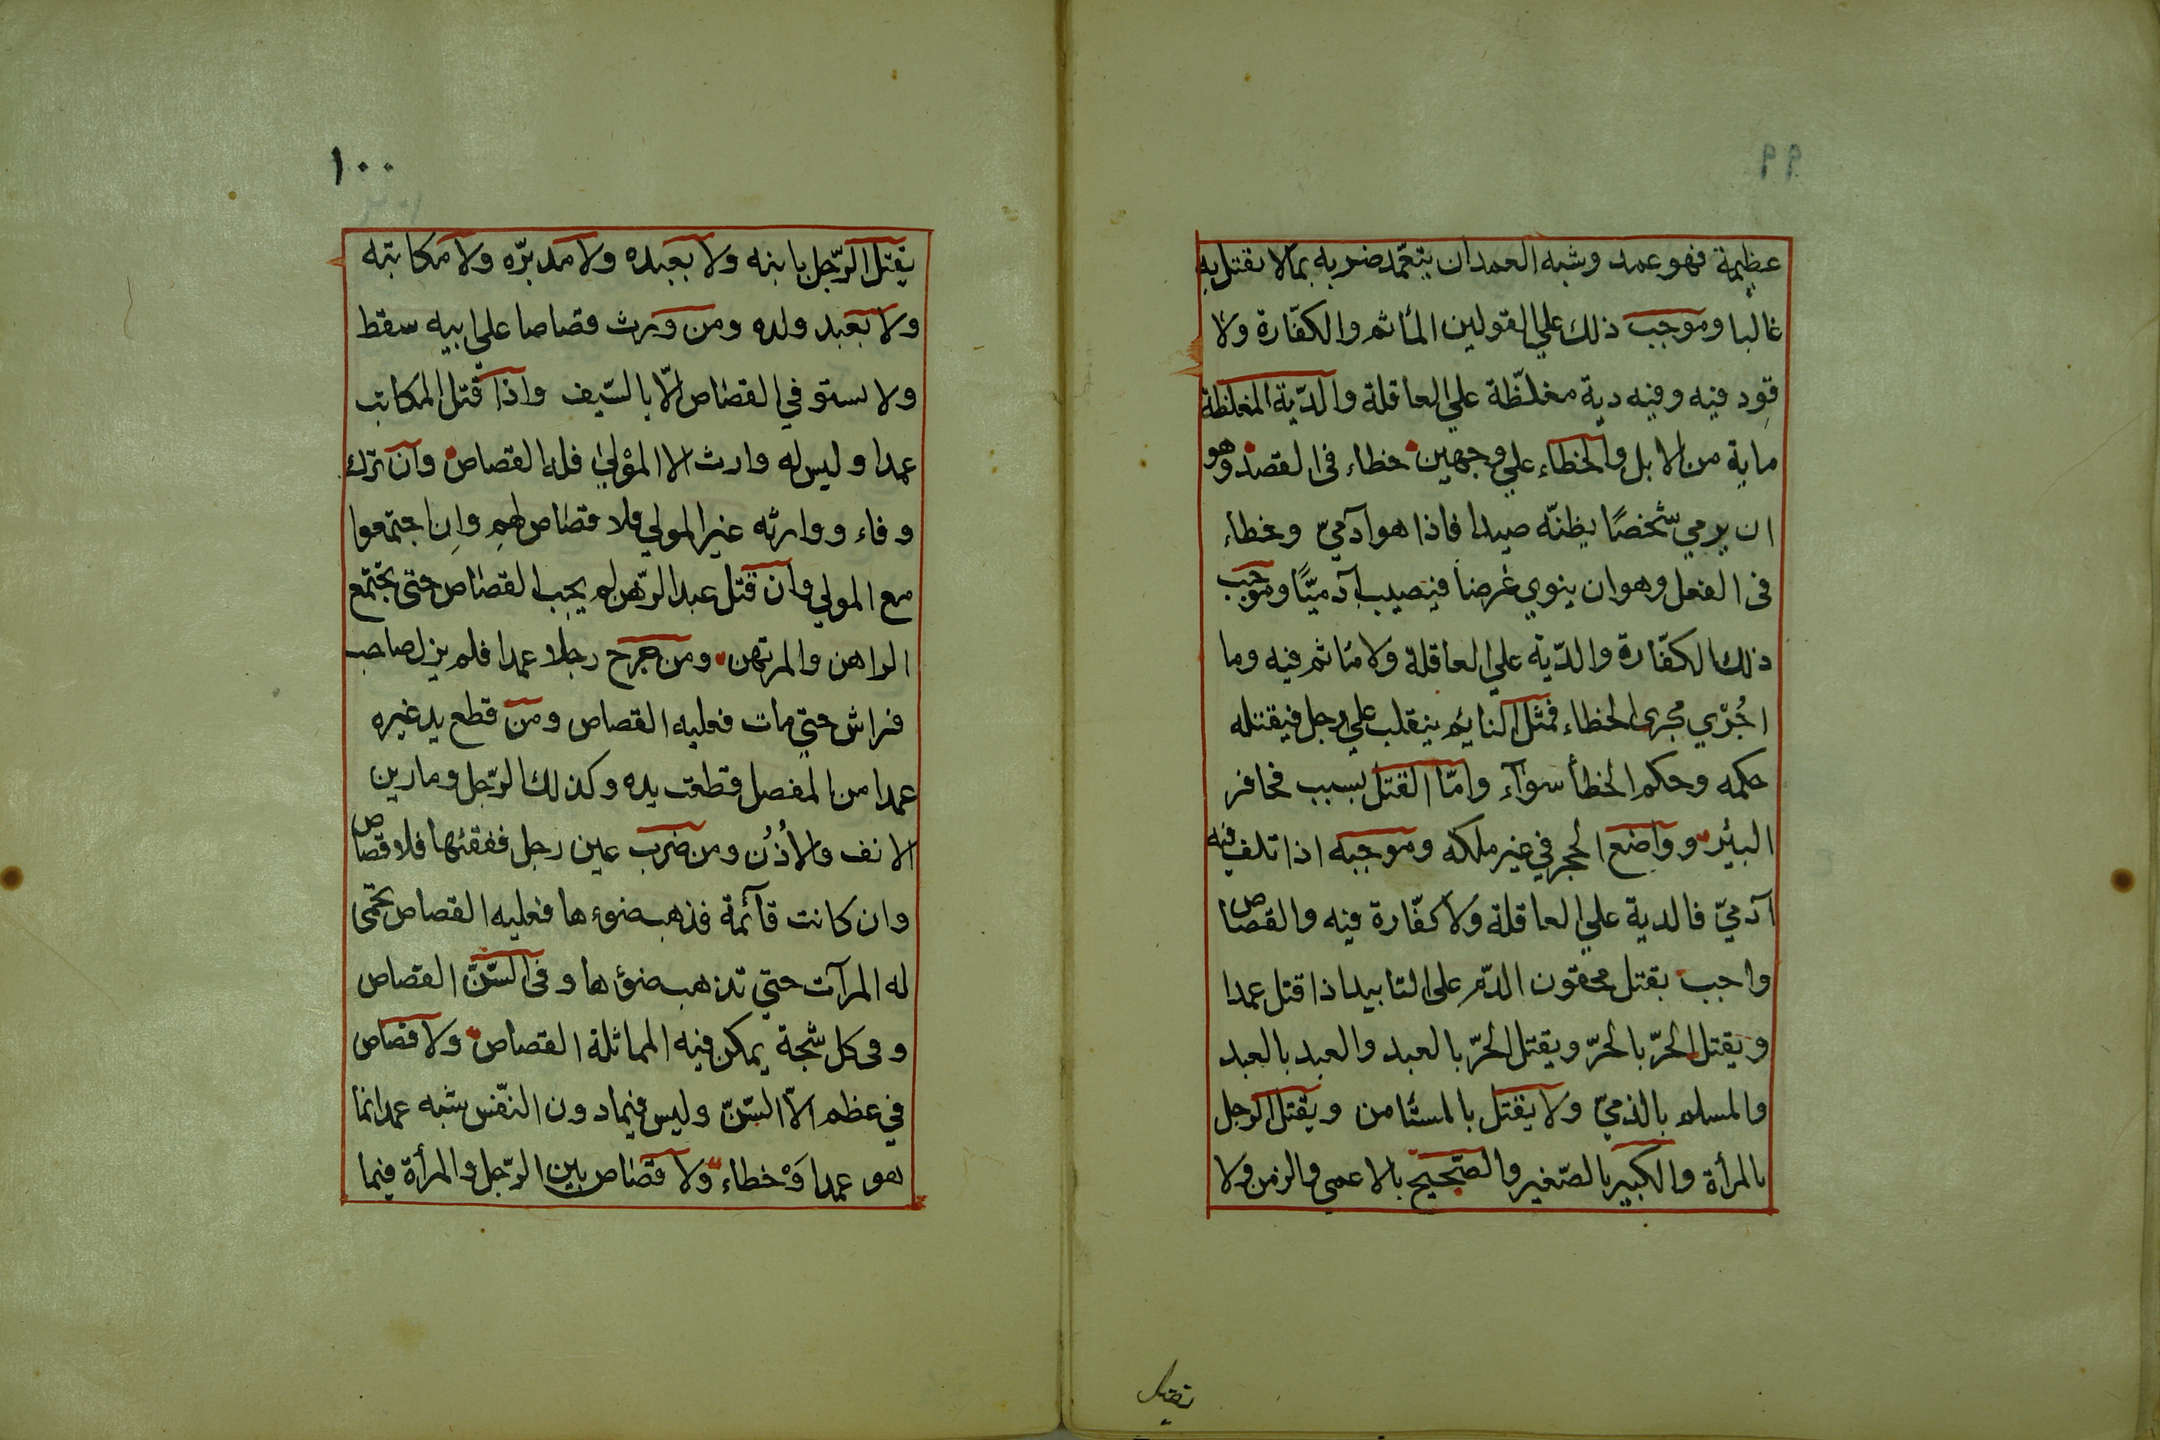 ٩٩
عظيمة فهو عمد وشبه العمد ان يتعمّد ضربه بما لا يقتل به
غالبا وموجب ذلك علي القولين المأثم والكفّارة ولا
قود فيه وفيه دية مغلّظة علي العاقلة والدّية المغلظة
ماية من الابل والخطاء علي وجهين خطاء فى القصد وهو
ان يرمي شخصًا يظنّه صيدا فاذا هو آدميّ وخطاء
فى الفعل وهو ان ينوي غرضا فيصيب آدميًّا وموجب
ذلك الكفّارة والدّية علي العاقلة ولا مأثم فيه وما
اُجْري مجرى الخطاء فمثل النايم ينقلب علي رجل فيقتله
حكمه وحكم الخطأ سوآء وامّا القتل بسبب فحافر
البئير وواضع الحجر في غير ملكه وموجبه اذا تلف فيه
آدميّ فالدية علي العاقلة ولا كفّارة فيه والقصاص
واجب بقتل محقون الدّم على التابيد اذا قتل عمدا
ويقتل الحرّ بالحرّ ويقتل الحرّ بالعبد والعبد بالعبد
والمسلم بالذميّ ولا يقتل بالمستأمن ويقتل الرجل
بالمرأة والكبير بالصّغير والصّحيح بالاعمي والزمن ولا
يقتل
١٠٠
يقتل الرّجل بابنه ولا بعبده ولا مدبرّه ولا مكاتبه
ولا بعبد ولده ومن ورث قصاصا علي ابيه سقط
ولا يستوفي القصاص الّا بالسّيف واذا قتل المكاتب
عمدا وليس له وارث الا المؤلي فله القصاص وان ترك
وفاء ووارثه غير المولي فلا قصاص لهم وان اجتمعوا
مع المولي وان قتل عبد الرّهن لم يجب القصاص حتى يجتمع
الراهن والمرتهن ومن جرح رجلا عمدا فلم يزل صاحب
فراش حتي مات فعليه القصاص ومن قطع يد غيره
عمدا من المفصل قطعت يده وكذلك الرّجل ومارين
الانف والاُذُن ومن ضرب عين رجل ففقئها فلا قصاص
وان كانت قآئمة فذهب ضوءها فعليه القصاص تحمى
له المرآت حتي تذهب ضؤها وفى السّنّ القصاص
وفى كل شجة يمكن فيه المماثلة القصاص ولا قصاص
في عظم الّا السّنّ وليس فيما دون النّفس شبه عمد انما
هو عمد اَوْ خطاء ولا قصاص بين الرّجل والمرأة فيما